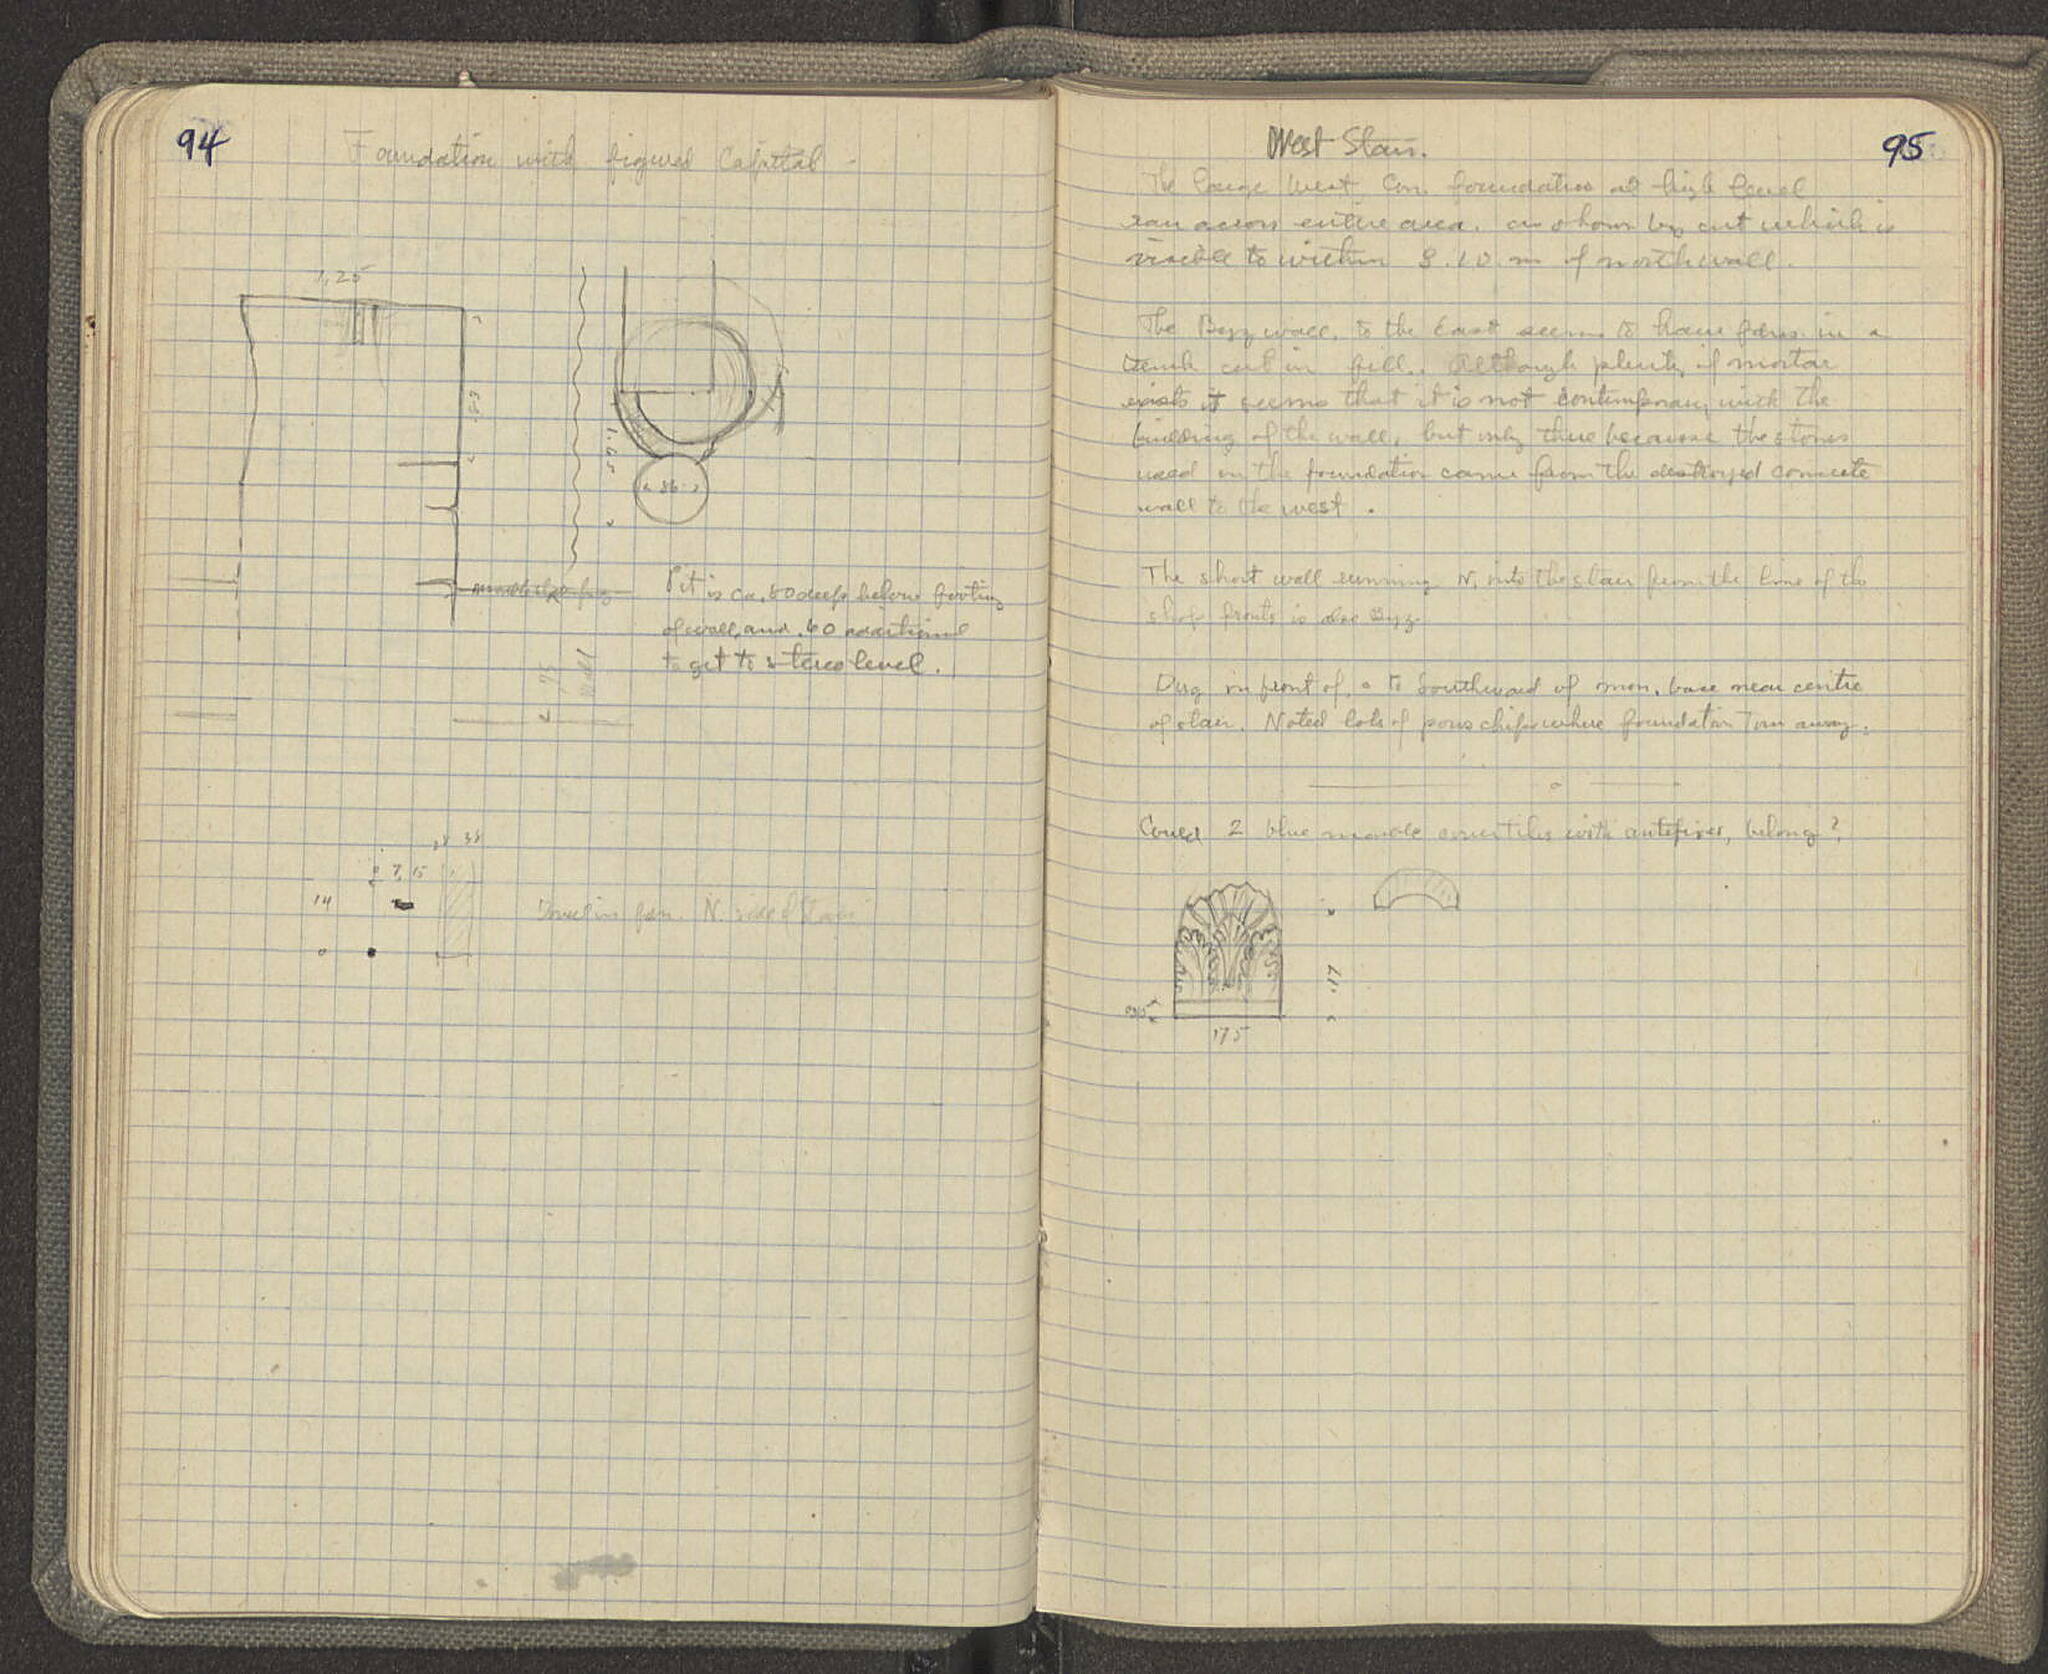 94
Foundation with figured Capital -
1,25
.83
1.05
.36
Pit is ca. .80 deep before footing
of wall, and .60 additional
to get to stereo level.
.75
wall
.8 38
0 7, 15
14
0
N. side of Stair
95
West Stair.
The large West Con. foundation at high level
ran across entire area. as shown by cut which is
visible to within 8.10. m of north wall.
The Byz wall. to the East seems to have been in a
trench cut in fill. Although plenty of mortar
exists it seems that it is not contemporary with the
building of the wall, but only there because the stones
used in the foundation came from the destroyed concrete
wall to the west.
The short wall running N. into the stair from the line of the
shop fronts is also Byz
Dug in front of, & to Southward of mon. base near centre
of stair. Noted lots of poros chips where foundation torn away.
Could 2 blue marble cover tiles with antefixes, belong?
.17
175